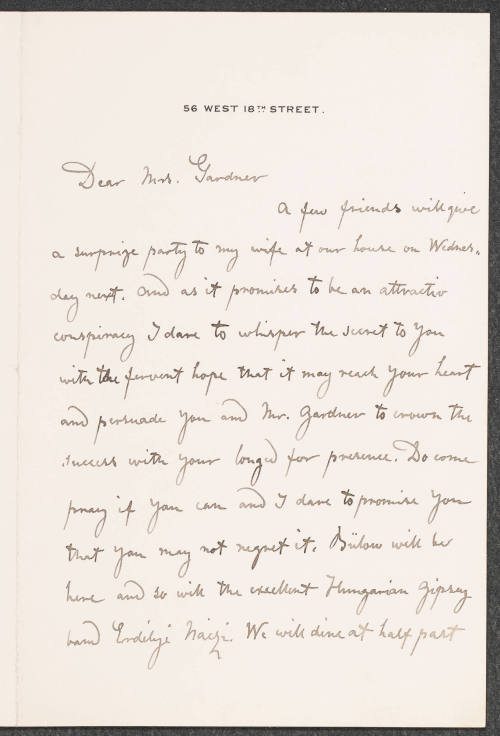 56 WEST 18TH STREET.
Dear Mrs. Gardner
A few friends will give
a surprize party to my wife at our house on Wednes-
day next. And as it promises to be an attractiv
conspiracy I dare to whisper the secret to you
with the fervent hope that it may reach your heart
and persuade you and Mr. Gardner to crown the
success with your longed for presence. Do come
pray if you can and I dare to promise you
that you may not regret it. Bülow will be
here and so will the excellent Hungarian gipsey
band Erdélyi Naczi. We will dine at half past